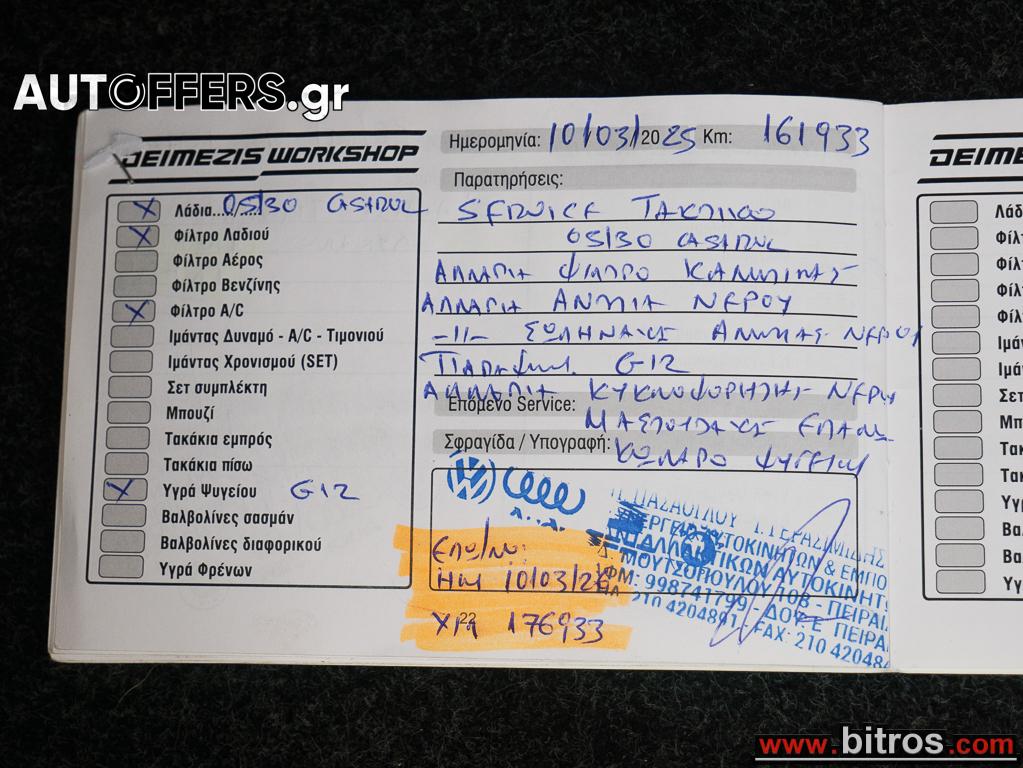 AUTOFFERS.gr
DEIMEZIS WORKSHOP
Ημερομηνία: 10/03/2025 Km: 161933
Παρατηρήσεις:
X Λάδια... 05/30 CASTROL
X Φίλτρο Λαδιού
Φίλτρο Αέρος
Φίλτρο Βενζίνης
X Φίλτρο A/C
Ιμάντας Δυναμό - A/C - Τιμονιού
Ιμάντας Χρονισμού (SET)
Σετ συμπλέκτη
Μπουζί
Τακάκια εμπρός
Τακάκια πίσω
X Υγρά Ψυγείου G12
Βαλβολίνες σασμάν
Βαλβολίνες διαφορικού
Υγρά Φρένων
SERVICE ΤΑΚΤΙΚΟ
05/30 CASTROL
ΑΛΛΑΓΗ ΦΙΛΤΡΟ ΚΑΜΠΙΝΑΣ
ΑΛΛΑΓΗ ΑΝΤΛΙΑ ΝΕΡΟΥ
-11- ΣΩΛΗΝΑΚΙ ΑΝΤΛΙΑΣ ΝΕΡΟΥ
G12
ΑΛΛΑΓΗ ΚΥΚΛΟΦΟΡΗΤΗΣ ΝΕΡΟΥ
Επόμενο Service:
ΕΠΑΝΩ
Σφραγίδα / Υπογραφή:
ΚΟΛΑΡΟ ΨΥΓΕΙΟΥ
ΓΕΡΑΣΙΜΙΔΗΣ
ΑΥΤΟΚΙΝΗΤΩΝ & ΕΜΠΟ
ΑΝΤΑΛΛΑΚΤΙΚΩΝ ΑΥΤΟΚΙΝΗΤ
ΜΟΥΤΣΟΠΟΥΛΟΥ 108 - ΠΕΙΡΑΙ
ΑΦΜ: 998741799 - ΔΟΥ Ε' ΠΕΙΡΑ
210 4204891 FAX: 210 42048
ΗΜ 10/03/26
22
ΧΡΜ 176933
DEIME
Λάδ
Φίλτ
Φίλτ
Φίλτ
Φίλτ
Ιμάν
Ιμάν
Σετ
Μπ
Τακ
Τακ
Υγρ
Βα
Βα
Υγ
www.bitros.com